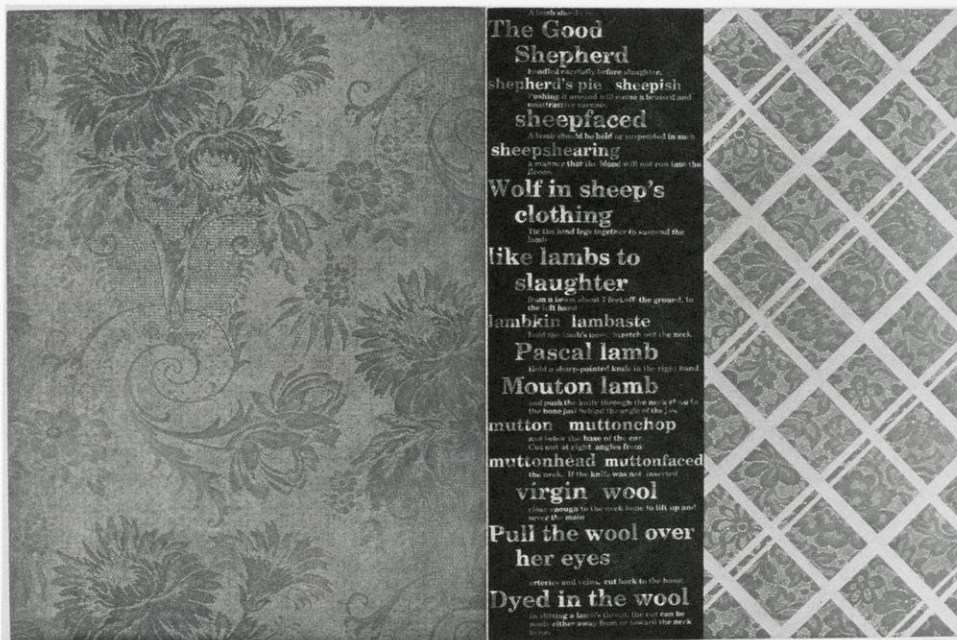 A lamb should be
The Good
Shepherd
handled carefully before slaughter.
shepherd's pie sheepish
Pushing it around will cause a bruised and
unattractive carcass.
sheepfaced
A lamb should be held or suspended in such
sheepshearing
a manner that the blood will not run into the
fleece.
Wolf in sheep's
clothing
Tie the hind legs together to suspend the
lamb
like lambs to
slaughter
from a beam about 2 feet off the ground. In
the left hand
lambkin lambaste
hold the lamb's nose. Stretch out the neck.
Pascal lamb
Hold a sharp-pointed knife in the right hand
Mouton lamb
and push the knife through the neck close to
the bone just behind the angle of the jaw
mutton muttonchop
and below the base of the ear.
Cut out at right angles from
muttonhead muttonfaced
the neck. If the knife was not inserted
virgin wool
close enough to the neck bone to lift up and
sever the main
Pull the wool over
her eyes
arteries and veins, cut back to the bone.
Dyed in the wool
In slitting a lamb's throat, the cut can be
made either away from or toward the neck